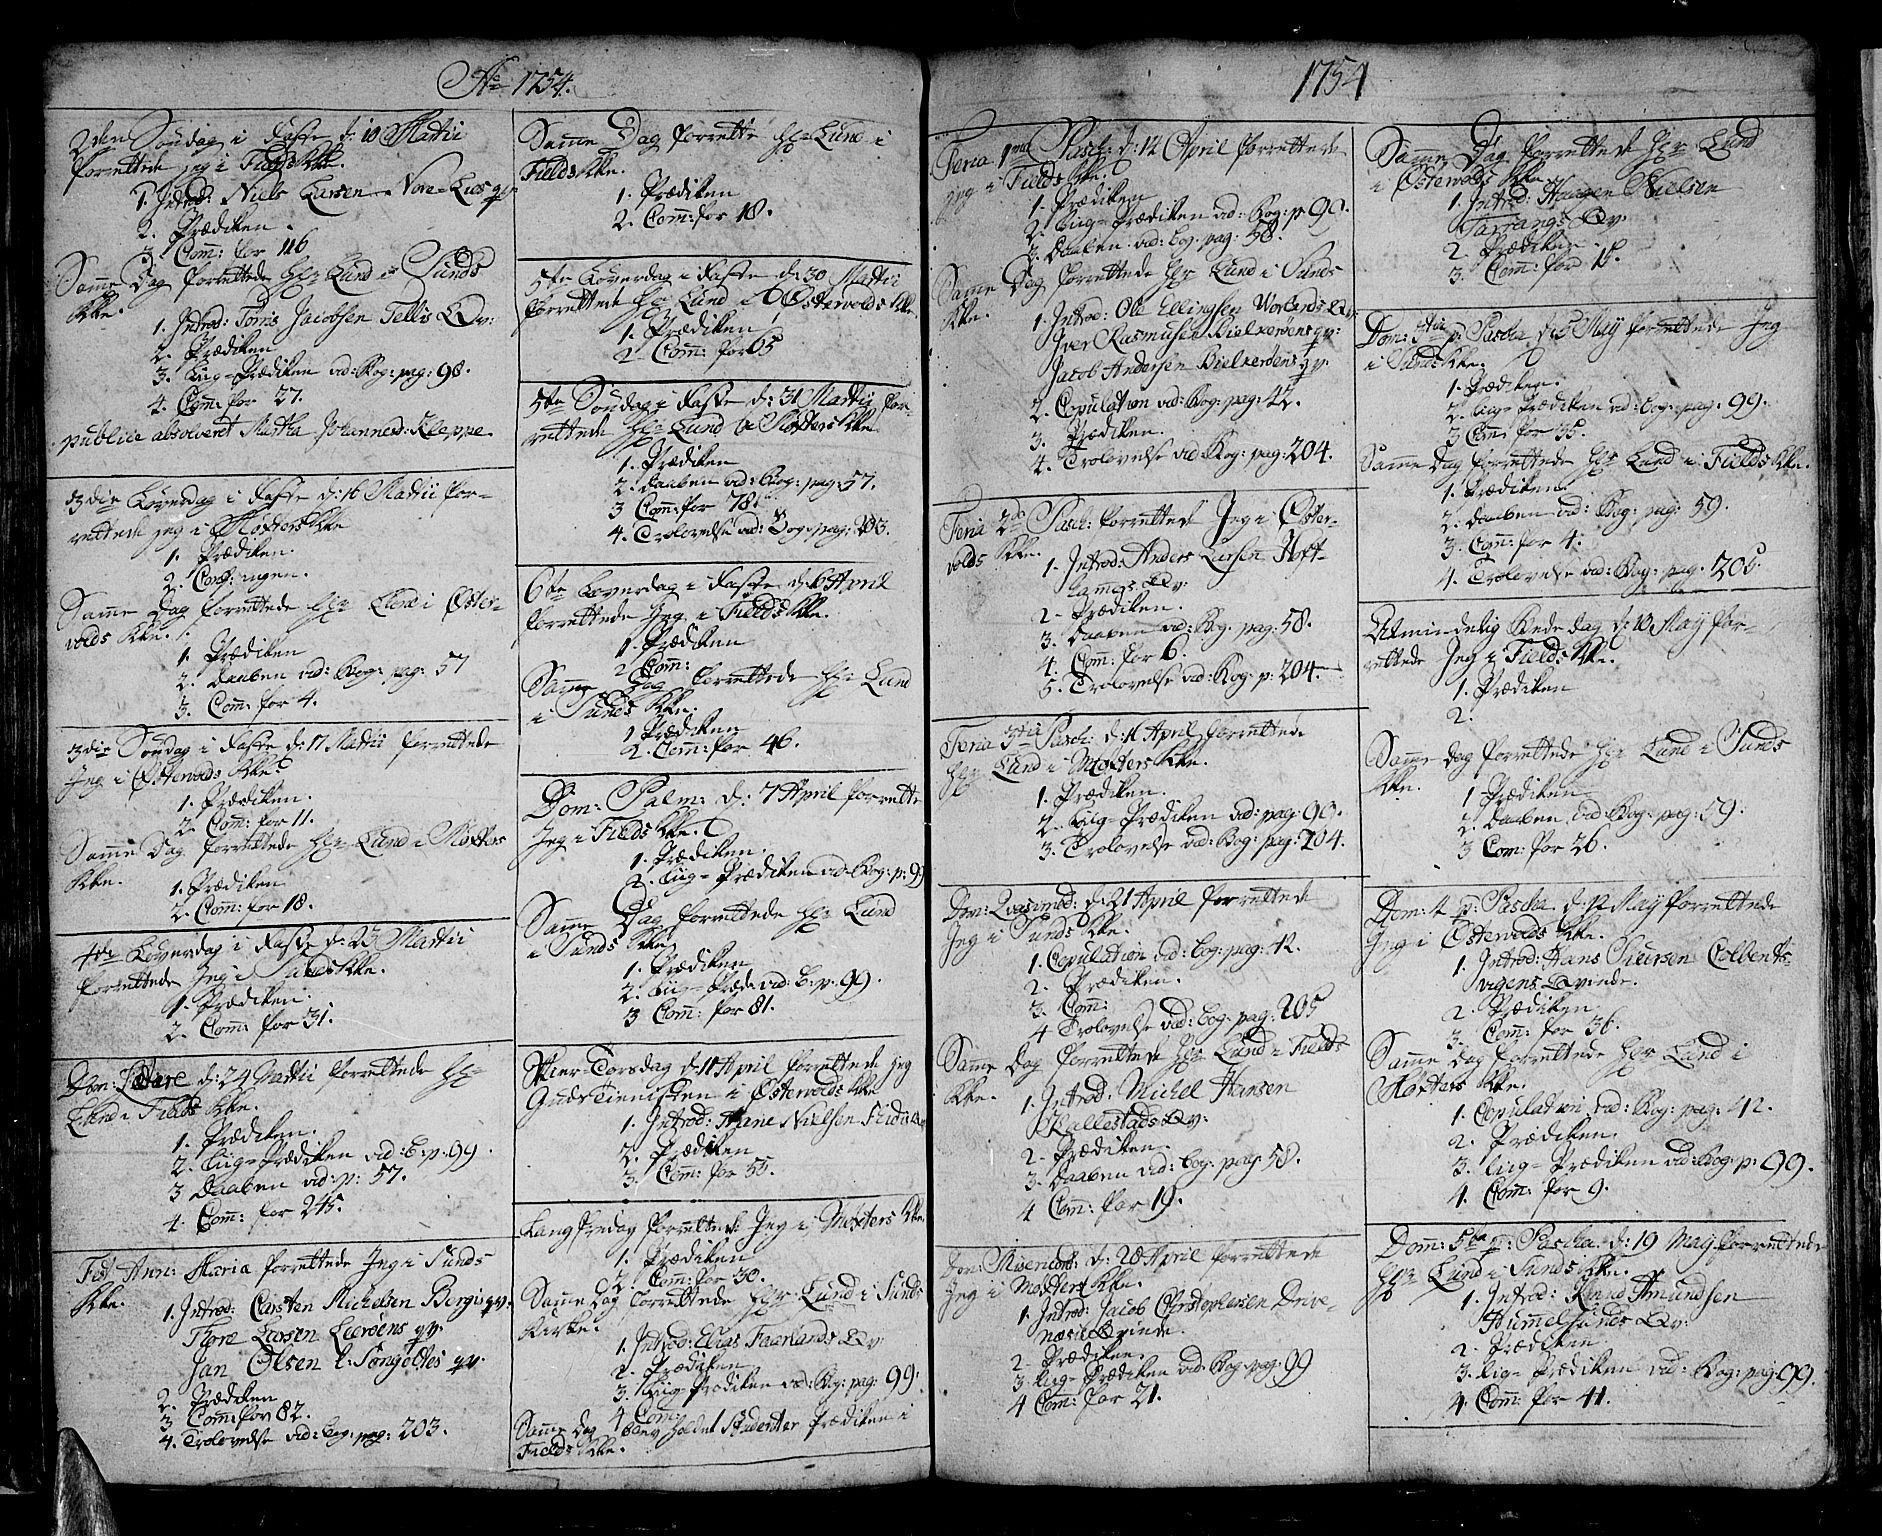 Ao 1754.
2den Søndag i Faste d: 10 Martii
forrettede jeg i Fields Kke.
1. Introd: Niels Larsen Nore-Lies qv
2. Prædiken.
3. Com: for 116
Samme Dag forrettede Hr Lund i Sunds
Kke.
1. Introd: Tørris Jacobsen Tellis Qv:
2. Prædiken
3. Liig-Prædiken vid: Bog: pag: 98.
4. Com: for 27.
publice absolveret Martha Johannesd: Kleppe
3die Løverdag i Faste d: 16 Martii for-
rettede jeg i Møxters Kke
1. Prædiken.
2. Conf: ingen.
Samme Dag forrettede Hr Lund i Øster-
volds Kke.
1. Prædiken
2. Daaben vid: Bog: pag: 57
3. Com: for 4.
3die Søndag i Faste d: 17 Martii forrettede
Jeg i Østervolds Kke.
1. Prædiken.
2. Com: for 11.
Samme Dag forrettede Hr Lund i Møxters
Kke.
1. Prædiken
2. Com: for 18.
4de Løverdag i Faste d: 23 Martii
forrettede Jeg i Sunds Kke.
1. Prædiken.
2. Com: for 31.
Dom: Lætare d: 24 Martii forrettede Hr
Lund i Fields Kke.
1. Prædiken.
2. Liig-Prædiken vid: B: p: 99.
3 Daaben vid: p: 57.
4. Com: for 245.
Fest Ann: Mariæ forrettede Jeg i Sunds
Kke.
1. Introd: Carsten Michelsen Bergis qv.
Thore Larsen Lierøens qv.
Jan Olsen l: Søngoltes qv.
2. Prædiken
3 Com: for 82.
4. Trolovelse vid: Bog. pag: 203.
Samme Dag forrette Hr Lund i
Fields Kke.
1. Prædiken
2. Com: for 18.
5te Løverdag i Faste d: 30 Martii
forrettede Hr Lund i Østervolds Kke
1. Prædiken
2. Com: for 65
5te Søndag i Faste d: 31 Martii for-
rettede Hr Lund i Møxters Kke
1. Prædiken
2. Daaben vid: Bog: pag: 57.
3 Com: for 78.
4. Trolovelse vid: Bog: pag: 203.
6te Løverdag i Faste d: 6 April
forrettede Jeg i Fields Kke.
1. Prædiken
2 Com:
Samme Dag forrettede Hr Lund
i Sunds Kke.
1. Prædiken
2. Com: for 46.
Dom: Palm: d: 7 April forrette
Jeg i Fields Kke.
1. Prædiken.
2. Liig-Prædiken vid: Bog: p: 99
Samme Dag forrettede Hr Lund
i Sunds Kke
1. Prædiken
2. Liig-Præd: vid: B: p: 99.
3 Com: for 81.
Skier-Torsdag d: 11 April forrettede Jeg
Gudstienisten i Østervolds Kke
1. Introd: Hane Nielsen Qv
2. Prædiken
3. Com: for 55.
Langfredag forrettede Jeg i Møxters Kke.
1. Prædiken
2. Com: for 30.
Samme Dag forrettede Hr Lund i Sunds
Kirke.
1. Introd: Elias Faarlands Qv
2. Prædiken
3. Liig-Prædiken vid: Bog: pag: 99.
4 Com:
Samme Dag blev holdet Studenter Prædiken i
Fields Kke.
1754
Feria 1ma Pasch: d: 14 April forrettede
jeg i Fields Kke.
1. Prædiken
2. Liig-Prædiken vid: Bog: p 99.
3. Daaben vid: Bog: pag: 58.
Samme Dag forrettede Hr Lund i Sunds
Kke.
1. Introd: Ole Ellingsen Vorlands Qv:
Iver Rasmusen Bielkerøens qv:
Jacob Andersen Bielkerøens qv.
2. Copulation vid: Bog: pag: 42.
3. Prædiken.
4. Trolovelse vid: Bog: pag: 204.
Feria 2da Pasch: forrettede Jeg i Øster-
volds Kke.
1. Introd: Anders Larsen Hoff-
Qv
2. Prædiken.
3. Daaben vid: Bog: pag: 58.
4. Com: for 6.
5. Trolovelse vid: Bog: p: 204.
Feria 3tia Pasch: d: 16 April forrettede
Hr Lund i Møxters Kke.
1. Prædiken.
2. Liig-Prædiken vid: pag: 99.
3. Trolovelse vid: Bog: pag: 204.
Dom: Qvasimod: d: 21 April forrettede
Jeg i Sunds Kke.
1. Copulation vid: Bog: pag: 42.
2. Prædiken.
3. Com:
4 Trolovelse vid: Bog: pag: 205
Samme Dag forrettede Hr Lund i Fields
Kke.
1. Introd. Michel Hansen
Skallestads Qv:
2. Prædiken
3. Daaben vid: Bog: pag: 58.
4 Com: for 19.
Dom: Misericord: d: 28 April forrettede
Jeg i Møxters Kke.
1. Introd: Jacob Christophersen Drive-
næsis Qvinde.
2. Prædiken.
3. Liig-Prædiken vid: Bog: pag: 99
4 Com: for 21.
Samme Dag forrettede Hr Lund
i Østervolds Kke.
1. Introd: Haagen Nielsen
Tarfangs Qv.
2. Prædiken.
3. Com: for 15.
Dom: 3tia p: Pascha d: 5 May forrettede Jeg
i Sunds Kke.
1. Prædiken.
2. Liig-Prædiken vid: Bog: pag: 99.
3 Com. for 35.
Samme Dag forrettede Hr Lund i Fields Kke.
1. Prædiken
2. Daaben vid: Bog: pag: 59.
3. Com: for 4.
4. Trolovelse vid: Bog: pag. 205.
Almindelig Bededag d: 10 May for-
rettede Jeg i Fields Kke.
1. Prædiken
2.
Samme Dag forrettede Hr Lund i Sunds
Kke.
1 Prædiken
2. Daaben vid: Bog: pag: 59.
3 Com: for 26.
Dom: 4 p: Pascha d: 12 May forrettede
Jeg i Østervolds Kke.
1. Introd: Hans Siursen Colbents-
vigens Qvinde.
2. Prædiken
3. Com: for 36.
Samme Dag forrettede Hr Lund i
Møxters Kke.
1. Copulation vid: Bog: pag: 42.
2. Prædiken.
3. Liig-Prædiken vid: Bog: p: 99.
4. Com: for 9.
Dom: 5ta p: Pascha d: 19 May forrettede
Hr Lund i Sunds Kke.
1. Introd: Amundsen
Hummelsunds Qv:
2. Prædiken.
3. Liig-Prædiken vid: Bog: pag: 99.
4. Com: for 41.